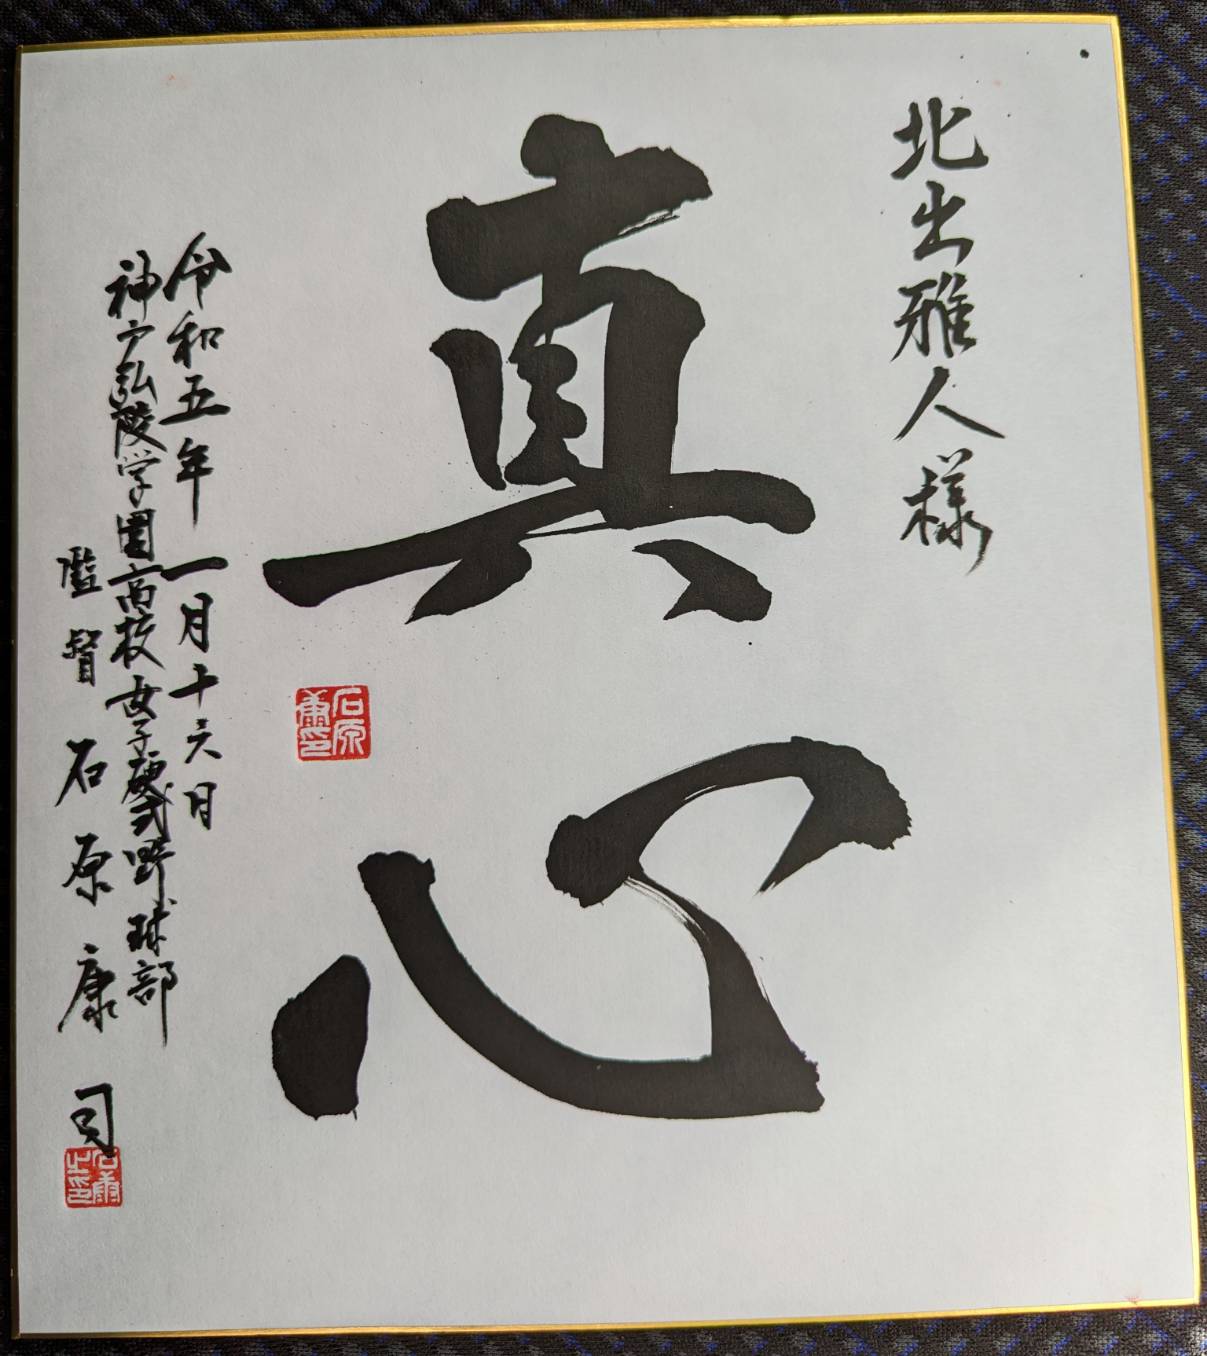 北出雅人様
真心
令和五年一月十六日
神戸弘陵学園高校女子硬式野球部
監督 石原康司
石原康印